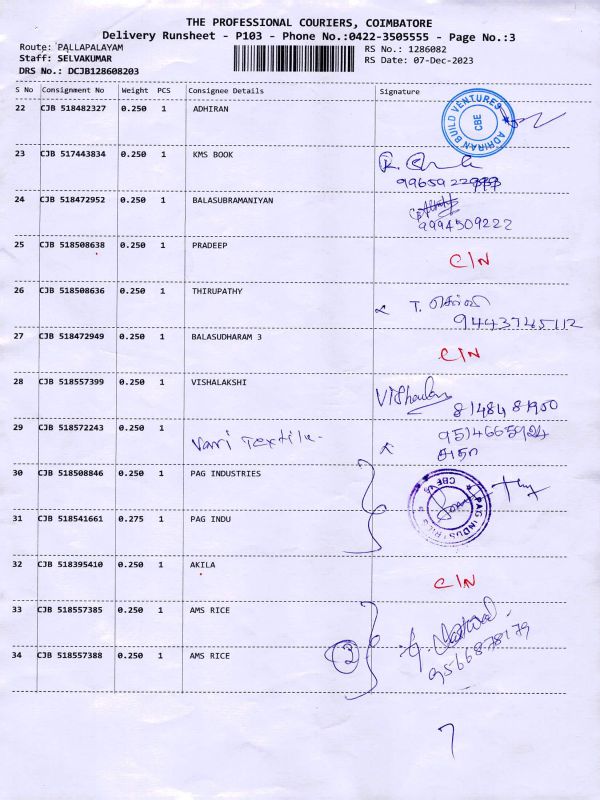 THE PROFESSIONAL COURIERS, COIMBATORE
Delivery Runsheet - P103 - Phone No.:0422-3505555 - Page No.:3
Route: PALLAPALAYAM RS No.: 1286082
Staff: SELVAKUMAR RS Date: 07-Dec-2023
DRS No.: DCJB128608203
S No Consignment No Weight PCS Consignee Details Signature
22 CJB 518482327 0.250 1 ADHIRAN
ADRIRAN BUILD VENTURES CBE
23 CJB 517443834 0.250 1 KMS BOOK
24 CJB 518472952 0.250 1 BALASUBRAMANIYAN
9994509222
25 CJB 518508638 0.250 1 PRADEEP
C/N
26 CJB 518508636 0.250 1 THIRUPATHY
T. செல்வி
9443745112
27 CJB 518472949 0.250 1 BALASUDHARAM 3
C/N
28 CJB 518557399 0.250 1 VISHALAKSHI
81484 81950
29 CJB 518572243 0.250 1 Vani Textile.
30 CJB 518508846 0.250 1 PAG INDUSTRIES
PAG INDUSTRIES
31 CJB 518541661 0.275 1 PAG INDU
32 CJB 518395410 0.250 1 AKILA
C/N
33 CJB 518557385 0.250 1 AMS RICE
9566878179
34 CJB 518557388 0.250 1 AMS RICE
2
7